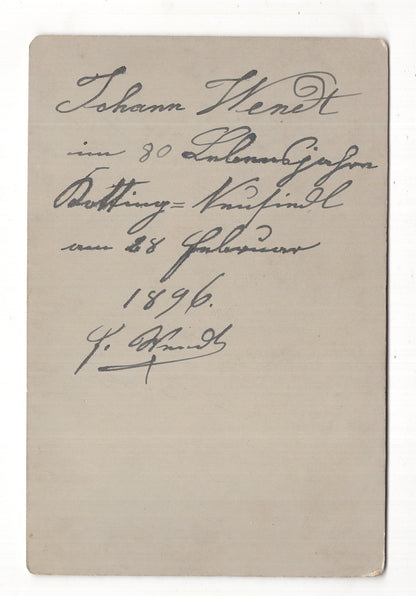 Johann Wendt
im 80 Lebensjahre
Kotting=Neusiedl
am 28 Februar
1896.
J. Wendt